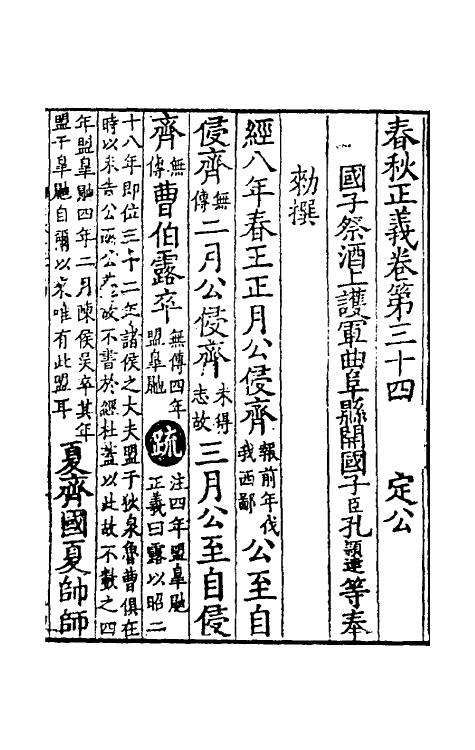 春秋正義卷第三十四　定公
國子祭酒上護軍曲阜縣開國子臣孔穎達等奉
勑撰
經八年春王正月公侵齊報前年伐我西鄙公至自
侵齊無傳二月公侵齊未得志故三月公至自侵
齊無傳曹伯露卒無傳四年盟皐鼬疏注四年盟皐鼬正義曰露以昭二
十八年即位三十二年諸侯之大夫盟于狄泉魯曹俱在
時以未告公而公薨故不書於經杜蓋以此故不數之四
年盟皐鼬四年二月陳侯吳卒其年
盟于皐鼬自彌以來唯有此盟耳夏齊國夏帥師